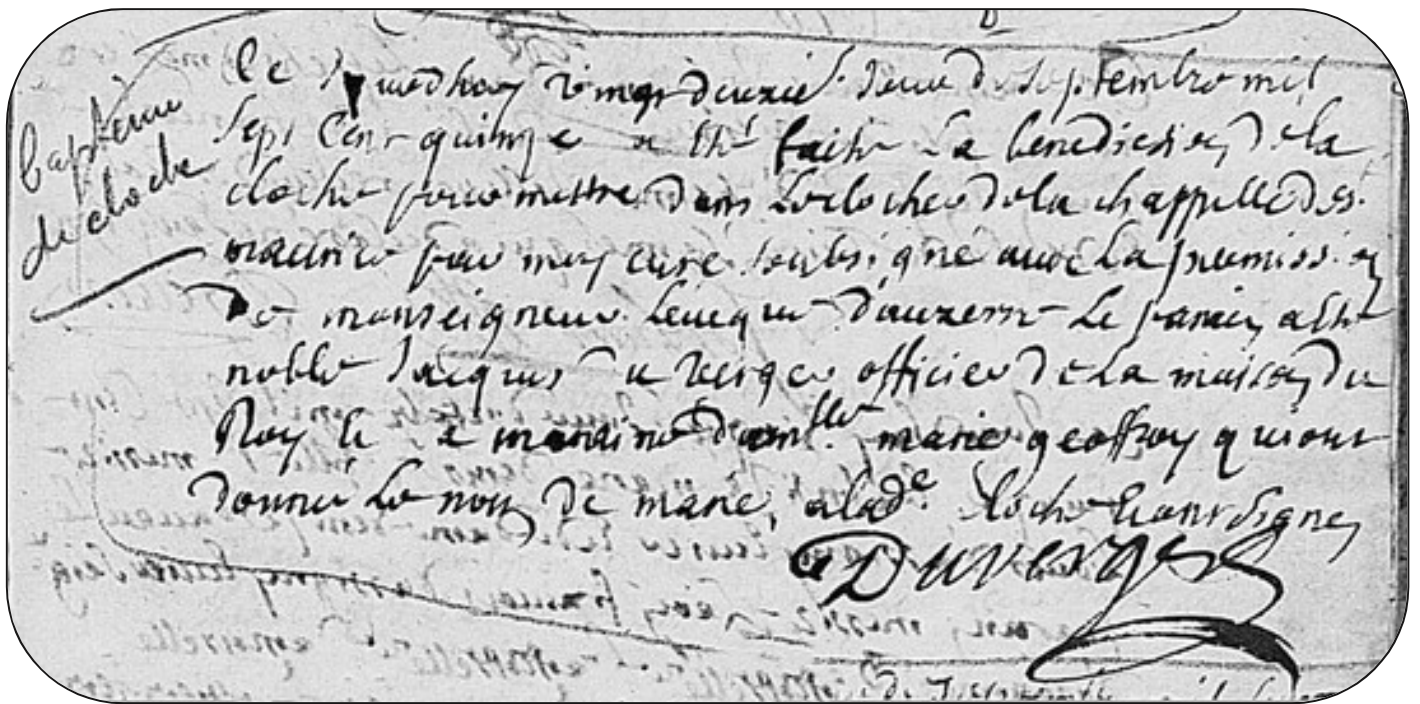 baptême
de cloche
Le vingt deuxie. Jour de septembre mil
sept cent quinze a été faitte La benediction de la
cloche pour mettre dans Le clocher de la chappelle de st.
maurice par moy curé soubsigné avec La permission
De monseigneur Leveque d'auxerre Le parain a été
noble Jacques du verger officier De La maison du
Roy et la maraine dam.lle marie geoffroy qui ont
donné Le nom De marie, a lad.e cloche Et ont signe
Duverger